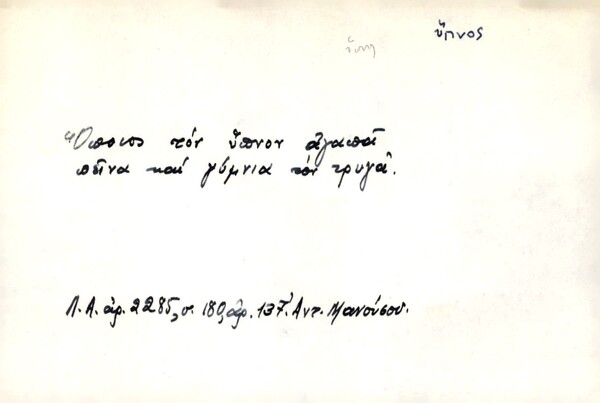 ὕπνος
Ὅποιος τόν ὕπνον ἀγαπᾶ
πεῖνα καί γύμνια τόν τρυγᾶ.
Λ.Α. ἀρ. 2285, σ. 180, ἀρ. 137. Ἀντ. Μανούσου.